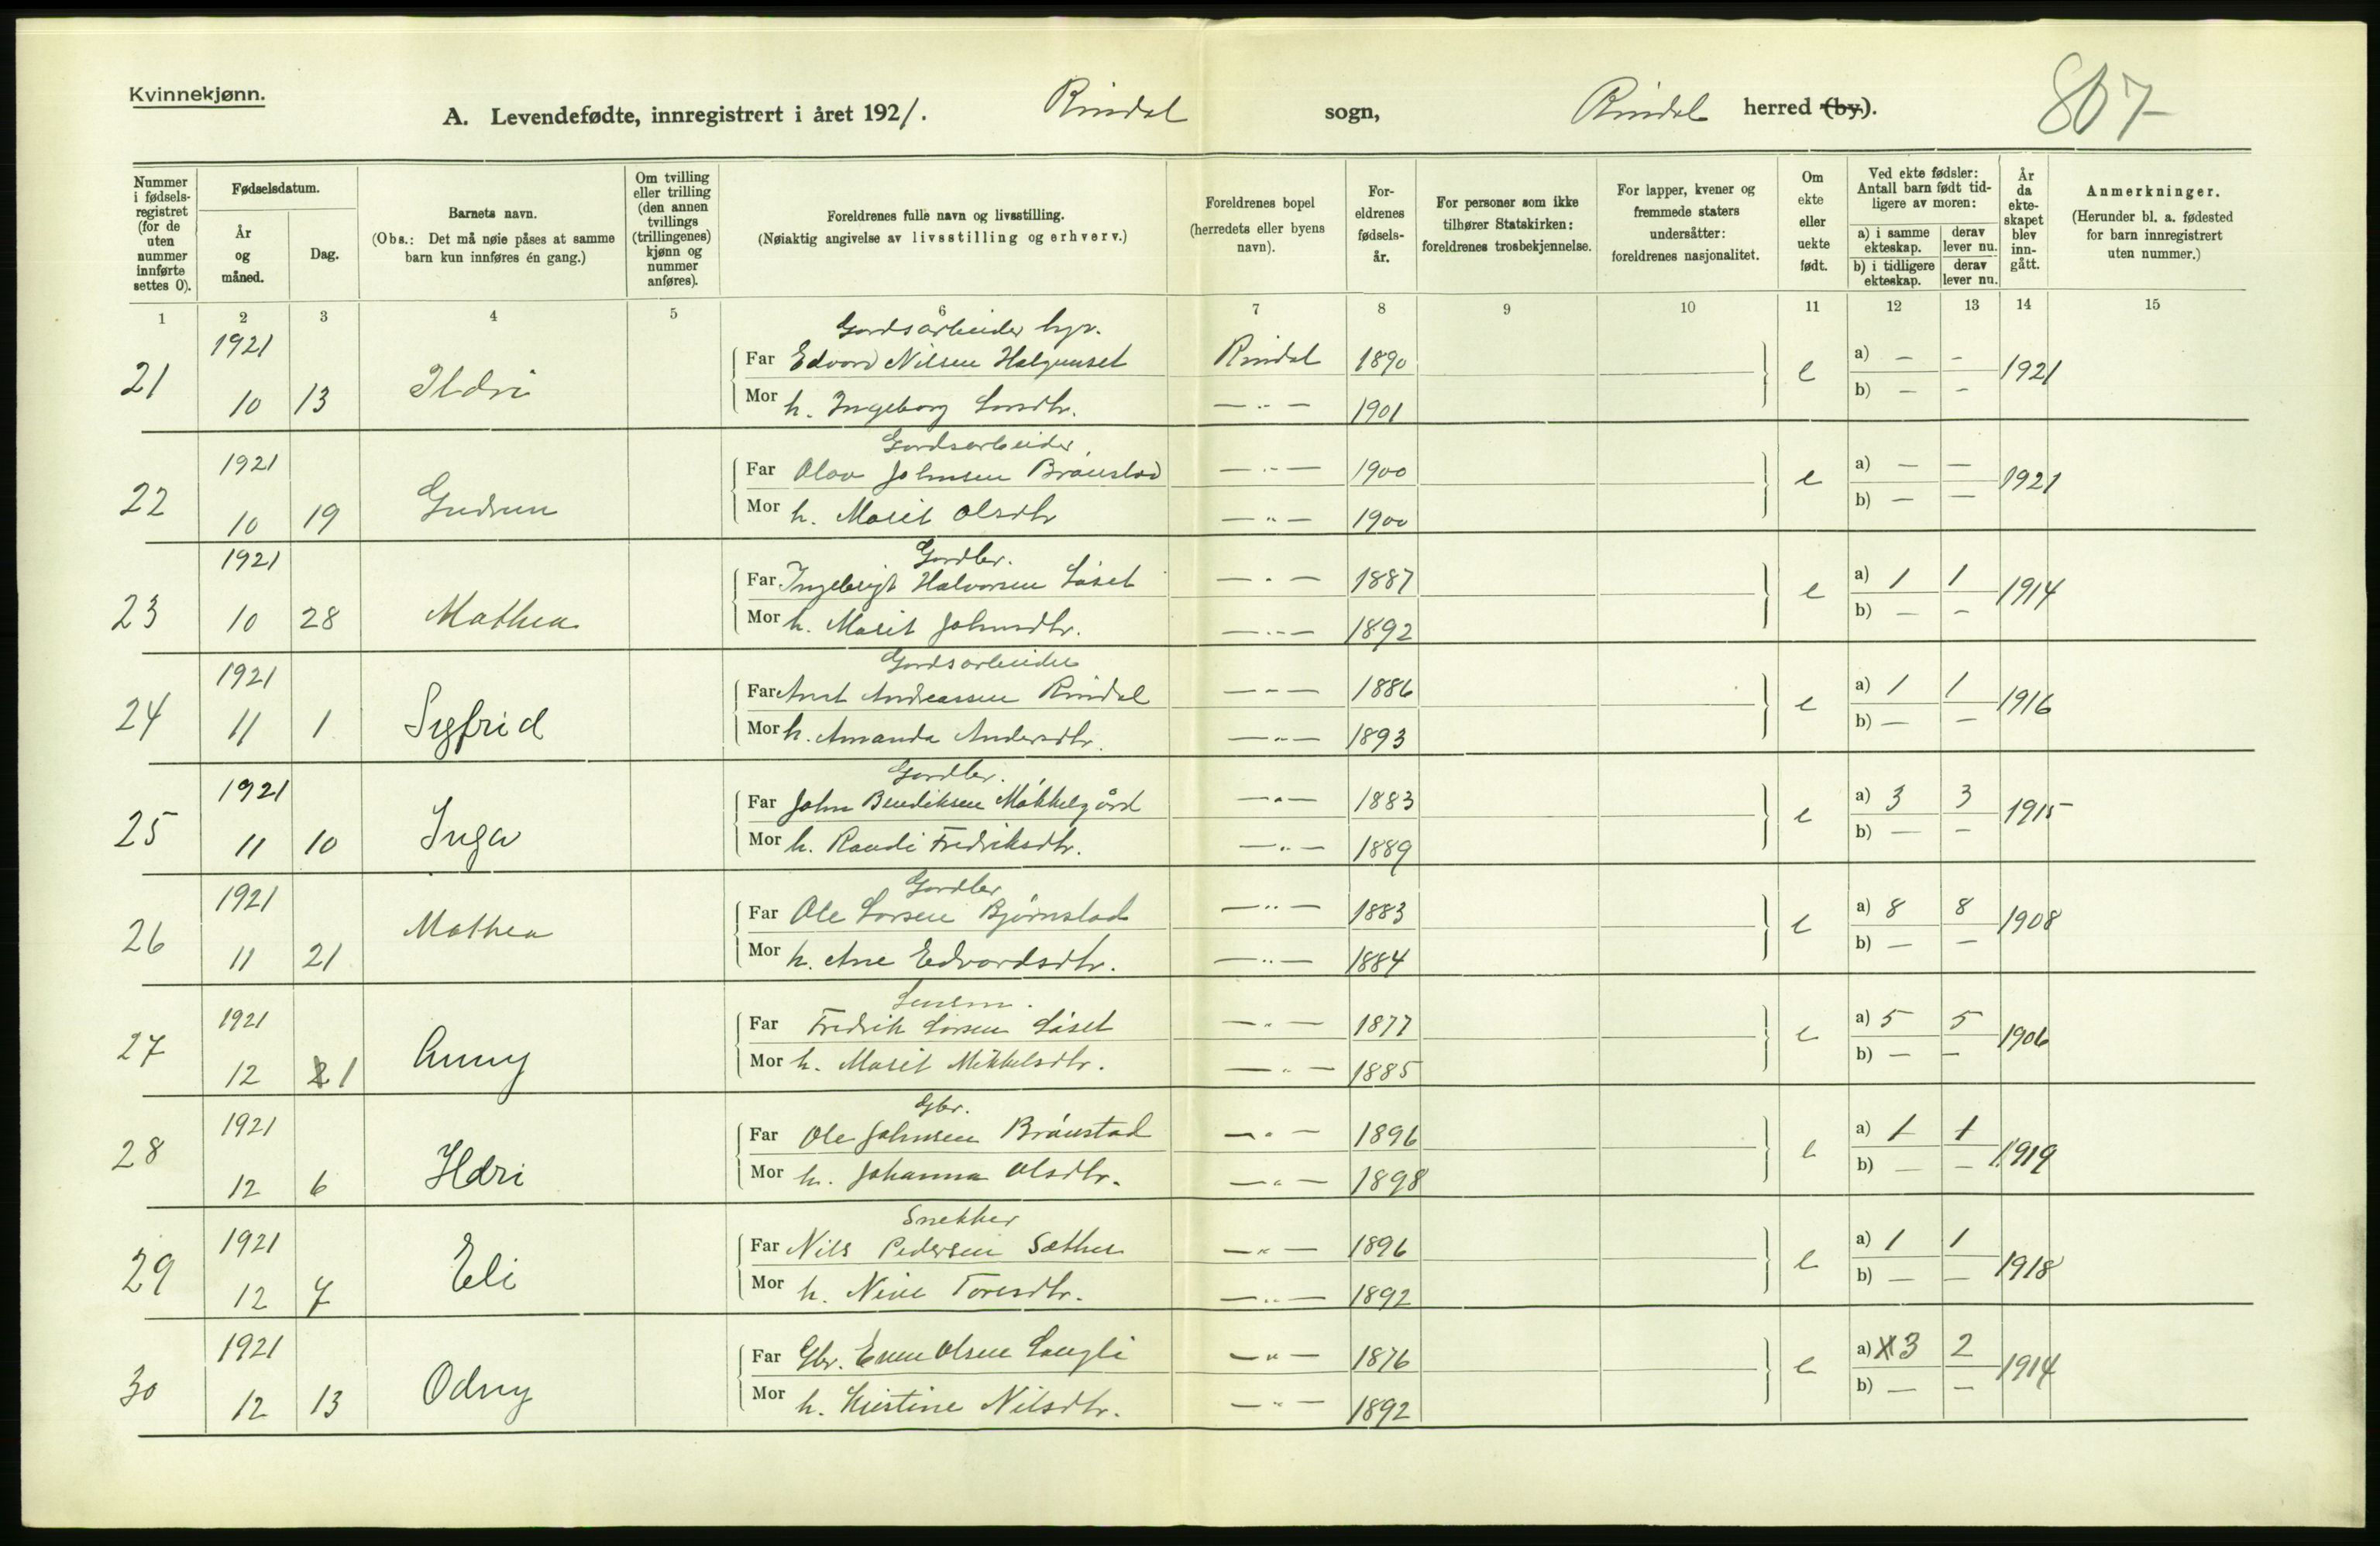 Kvinnekjønn.
A. Levendefødte, innregistrert i året 1921. Rindal sogn, Rindal herred (by).
807
Nummer i fødsels-registret (for de uten nummer innførte settes 0).
Fødselsdatum.
År og måned.
Dag.
Barnets navn.
(Obs.: Det må nøie påses at samme barn kun innføres én gang.)
Om tvilling eller trilling (den annen tvillings (trillingenes) kjønn og nummer anføres).
Foreldrenes fulle navn og livsstilling.
(Nøiaktig angivelse av livsstilling og erhverv.)
Foreldrenes bopel (herredets eller byens navn).
For-eldrenes fødsels-år.
For personer som ikke tilhører Statskirken: foreldrenes trosbekjennelse.
For lapper, kvener og fremmede staters undersåtter: foreldrenes nasjonalitet.
Om ekte eller uekte født.
Ved ekte fødsler: Antall barn født tid-ligere av moren:
a) i samme ekteskap. derav lever nu.
b) i tidligere ekteskap. derav lever nu.
År da ekte-skapet blev inn-gått.
Anmerkninger.
(Herunder bl. a. fødested for barn innregistrert uten nummer.)
1 2 3 4 5 6 7 8 9 10 11 12 13 14 15
Gardsarbeider
21 1921 10 13 Ildri
Far Edvard Nilsen Halgunset Rindal 1890 e a) — — 1921
Mor h. Ingeborg Larsdtr. — „ — 1901 b) — —
Gardsarbeider
22 1921 10 19 Gudrun
Far Olav Johnsen Brånstad — „ — 1900 e a) — — 1921
Mor h. Marit Olsdtr — „ — 1900 b) — —
Gardbr.
23 1921 10 28 Mathea
Far Ingebrigt Halvorsen Låset — „ — 1887 e a) 1 1 1914
Mor h. Marit Johnsdtr. — „ — 1892 b) — —
Gardsarbeider
24 1921 11 1 Sigfrid
Far Arnt Andreassen Rindal — „ — 1886 e a) 1 1 1916
Mor h. Amanda Andersdtr. — „ — 1893 b) — —
Gardbr.
25 1921 11 10 Inga
Far John Bendiksen Mikkelgård — „ — 1883 e a) 3 3 1915
Mor h. Randi Fredriksdtr. — „ — 1889 b) — —
Gardbr
26 1921 11 21 Mathea
Far Ole Larsen Bjørnstad — „ — 1883 e a) 8 8 1908
Mor h. Ane Edvardsdtr. — „ — 1884 b) — —
Lensm.
27 1921 12 1 Anny
Far Fredrik Larsen Låset — „ — 1877 e a) 5 5 1906
Mor h. Marit Mikkelsdtr. — „ — 1885 b) — —
Gbr.
28 1921 12 6 Ildri
Far Ole Johnsen Brånstad — „ — 1896 e a) 1 1 1919
Mor h. Johanna Olsdtr. — „ — 1898 b) — —
Snekker
29 1921 12 7 Eli
Far Nils Pedersen Sæther — „ — 1896 e a) 1 1 1918
Mor h. Toresdtr. — „ — 1892 b) — —
30 1921 12 13 Odny
Far Gbr. Even Olsen Langli — „ — 1876 e a) 3 2 1914
Mor h. Kristine Nilsdtr. — „ — 1892 b) — —